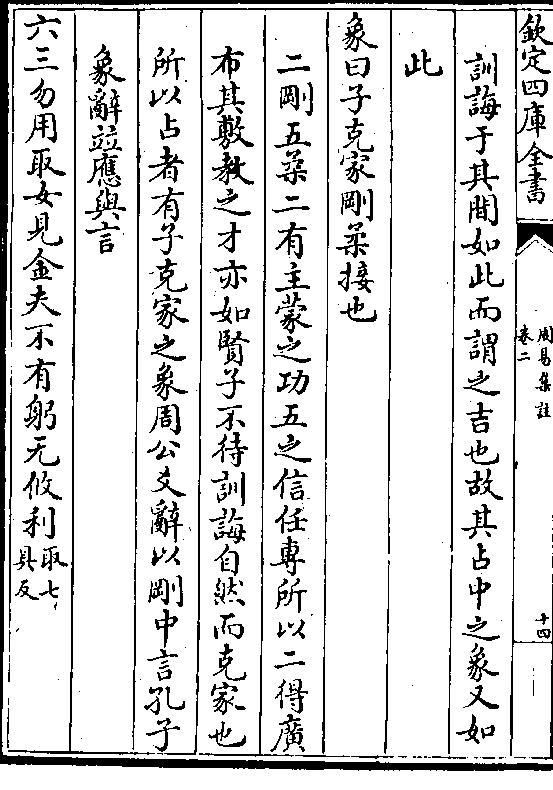 欽定四庫全書
周易集註
卷二
十四
訓誨于其間如此而謂之吉也故其占中之象又如
此
象曰子克家剛柔接也
二剛五柔二有主蒙之功五之信任專所以二得廣
布其敷教之才亦如賢子不待訓誨自然而克家也
所以占者有子克家之象周公爻辭以剛中言孔子
象辭竝應與言
六三勿用取女見金夫不有躬无攸利取七具反